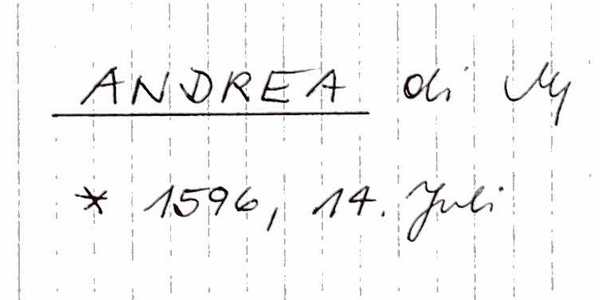 ANDREA di
* 1596, 14. Juli